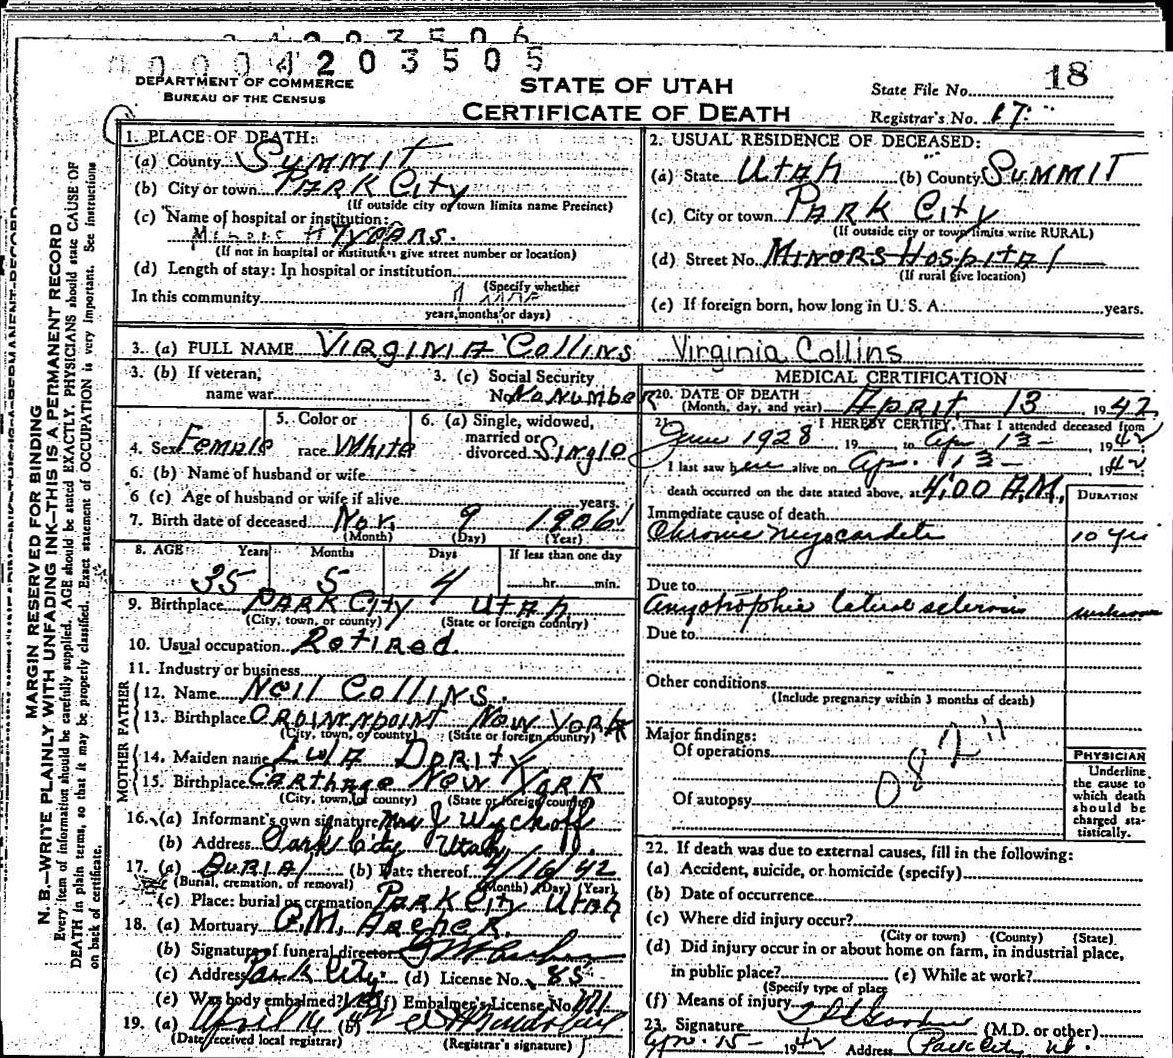 4203505
DEPARTMENT OF COMMERCE
BUREAU OF THE CENSUS
STATE OF UTAH
CERTIFICATE OF DEATH
State File No. 18
Registrar's No. 17
MARGIN RESERVED FOR BINDING
N. B.—WRITE PLAINLY WITH UNFADING INK—THIS IS A PERMANENT RECORD
Every item of information should be carefully supplied. AGE should be stated EXACTLY. PHYSICIANS should state CAUSE OF
DEATH in plain terms, so that it may be properly classified. Exact statement of OCCUPATION is very important. See instructions
on back of certificate.
1. PLACE OF DEATH:
(a) County Summit
(b) City or town Park City
(If outside city or town limits name Precinct)
(c) Name of hospital or institution:
years.
(If not in hospital or institution give street number or location)
(d) Length of stay: In hospital or institution
(Specify whether
In this community
years, months or days)
2. USUAL RESIDENCE OF DECEASED:
(a) State Utah (b) County Summit
(c) City or town Park City
(If outside city or town limits write RURAL)
(d) Street No. Minors Hospital
(If rural give location)
(e) If foreign born, how long in U. S. A. years.
3. (a) FULL NAME Virginia Collins Virginia Collins
3. (b) If veteran,
name war
3. (c) Social Security
No. No Number
4. Sex Female
5. Color or
race White
6. (a) Single, widowed,
married or
divorced Single
6. (b) Name of husband or wife
6 (c) Age of husband or wife if alive years.
7. Birth date of deceased Nov. 9 1906
(Month) (Day) (Year)
8. AGE Years Months Days If less than one day
35 5 4 hr. min.
9. Birthplace Park City Utah
(City, town, or county) (State or foreign country)
10. Usual occupation Retired.
11. Industry or business
FATHER
12. Name Neil Collins.
13. Birthplace New York
(City, town, or county) (State or foreign country)
MOTHER
14. Maiden name Lula
15. Birthplace Carthage New York
(City, town, or county) (State or foreign country)
16. (a) Informant's own signature Mrs J Wyckoff
(b) Address Park City Utah
17. (a) Burial (b) Date thereof 4/16/42
(Burial, cremation, or removal) (Month) (Day) (Year)
(c) Place: burial or cremation Park City Utah
18. (a) Mortuary G.M. Archer.
(b) Signature of funeral director G M Archer
(c) Address Park City. (d) License No. 85
(e) Was body embalmed? Yes (f) Embalmer's License No.
19. (a) April 16 42 (b)
(Date received local registrar) (Registrar's signature)
MEDICAL CERTIFICATION
20. DATE OF DEATH
(Month, day, and year) April 13, 1942
21. I HEREBY CERTIFY, That I attended deceased from
June 1928, 19 to Apr 13-, 1942
I last saw her alive on Apr. 13-, 1942
death occurred on the date stated above, at 4:00 A.M.
DURATION
Immediate cause of death
Chronic Myocarditis 10 yrs
Due to
Amyotrophic lateral sclerosis unknown
Due to
Other conditions
(Include pregnancy within 3 months of death)
Major findings:
Of operations
Of autopsy
PHYSICIAN
Underline
the cause to
which death
should be
charged sta-
tistically.
22. If death was due to external causes, fill in the following:
(a) Accident, suicide, or homicide (specify)
(b) Date of occurrence
(c) Where did injury occur?
(City or town) (County) (State)
(d) Did injury occur in or about home on farm, in industrial place,
in public place? (e) While at work?
(Specify type of place
(f) Means of injury
23. Signature (M.D. or other)
Apr. 15- 1942 Address Park City, Ut.